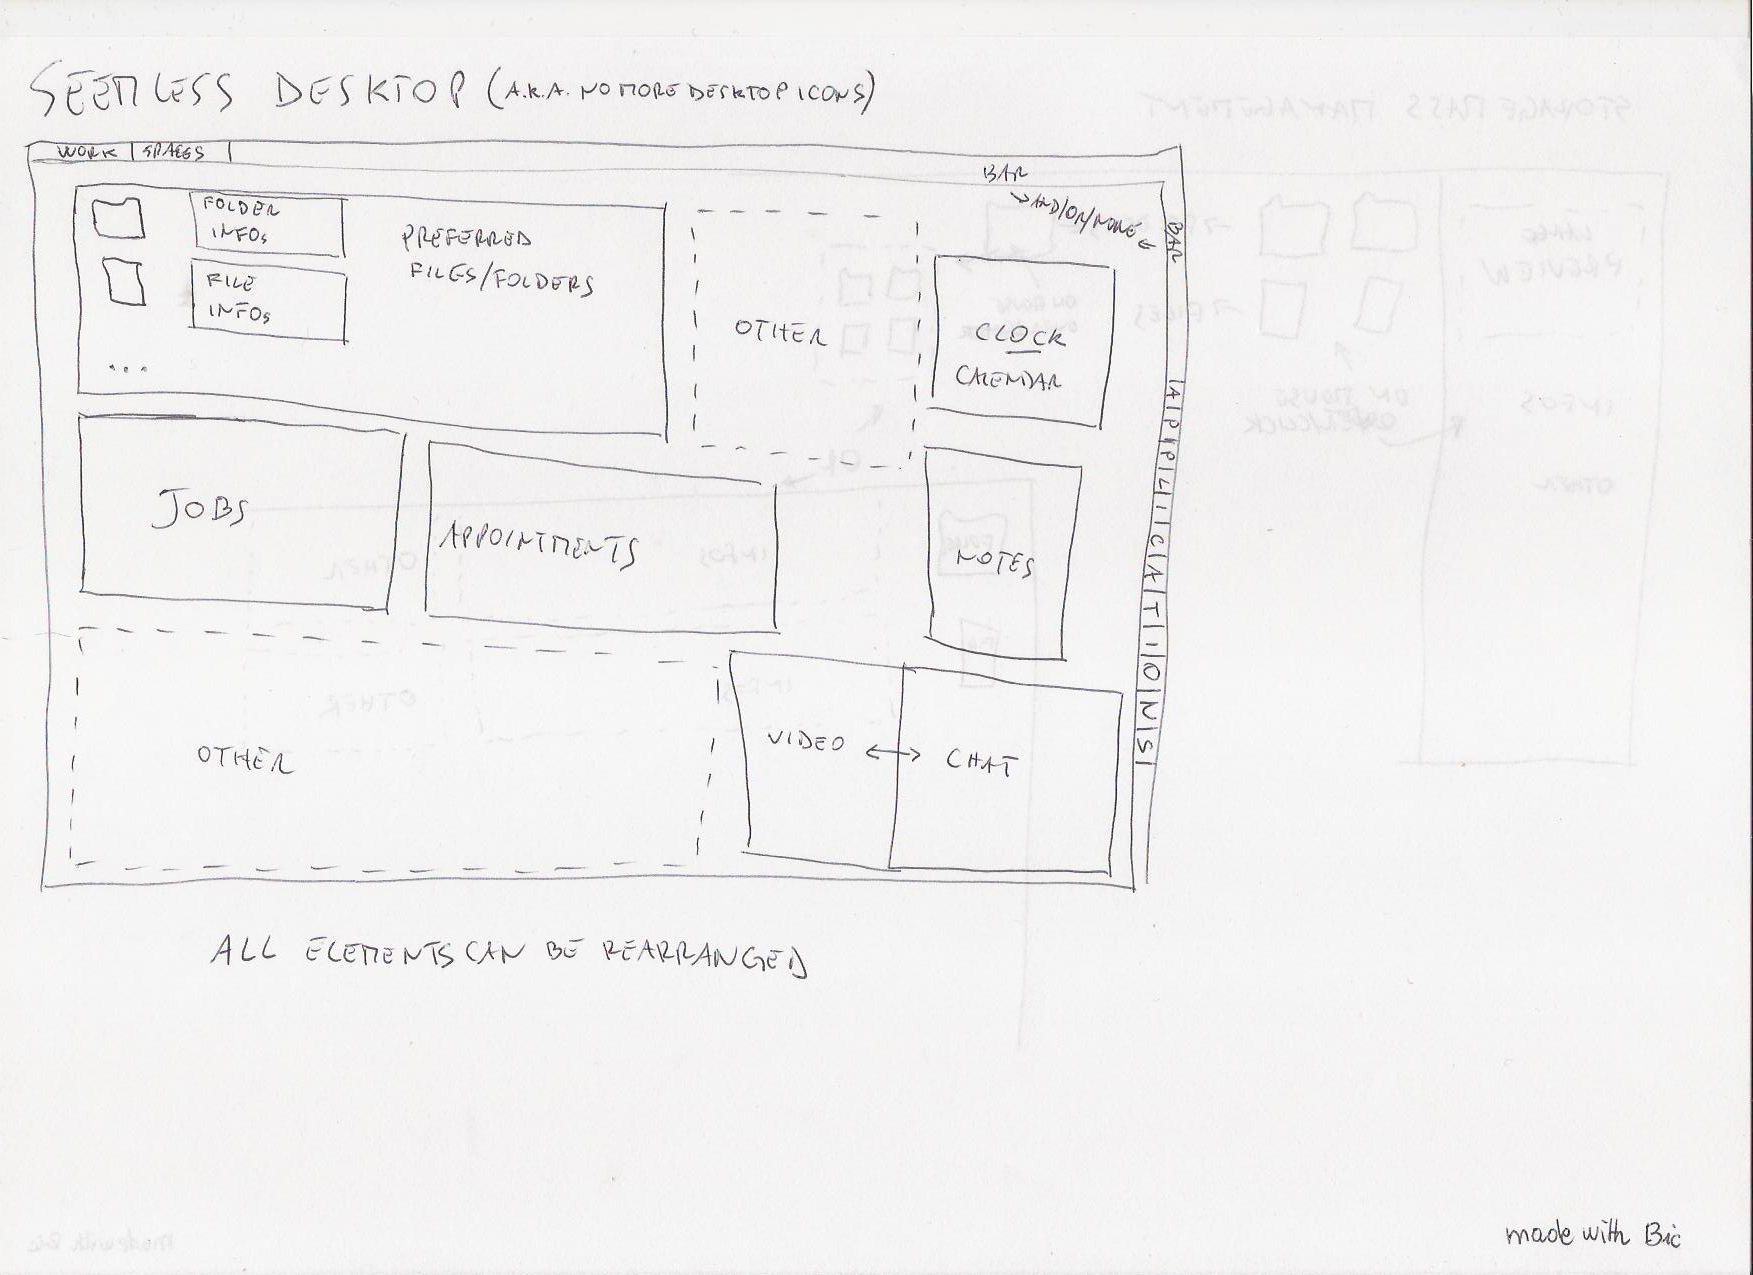 SEEMLESS DESKTOP (A.K.A. NO MORE DESKTOP ICONS)
WORK | SPACES |
BAR
AND/OR/NONE
BAR
FOLDER
INFOs
PREFERRED
FILES/FOLDERS
FILE
INFOs
...
OTHER
CLOCK
CALENDAR
|A|P|P|L|I|C|A|T|I|O|N|S|
JOBS
APPOINTMENTS
NOTES
OTHER
VIDEO
CHAT
ALL ELEMENTS CAN BE REARRANGED
made with Bic